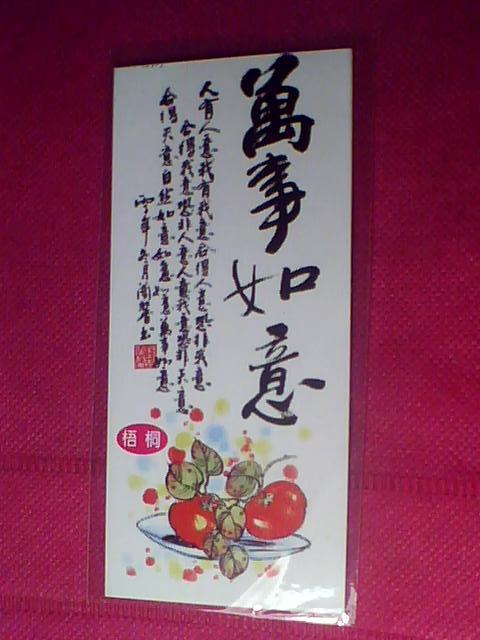 萬事如意
人有人意我有我意合得人意恐非我意
合得我意恐非人意人意我意恐非天意
合得天意自然如意如意如意萬事如意
年冬月
梧桐